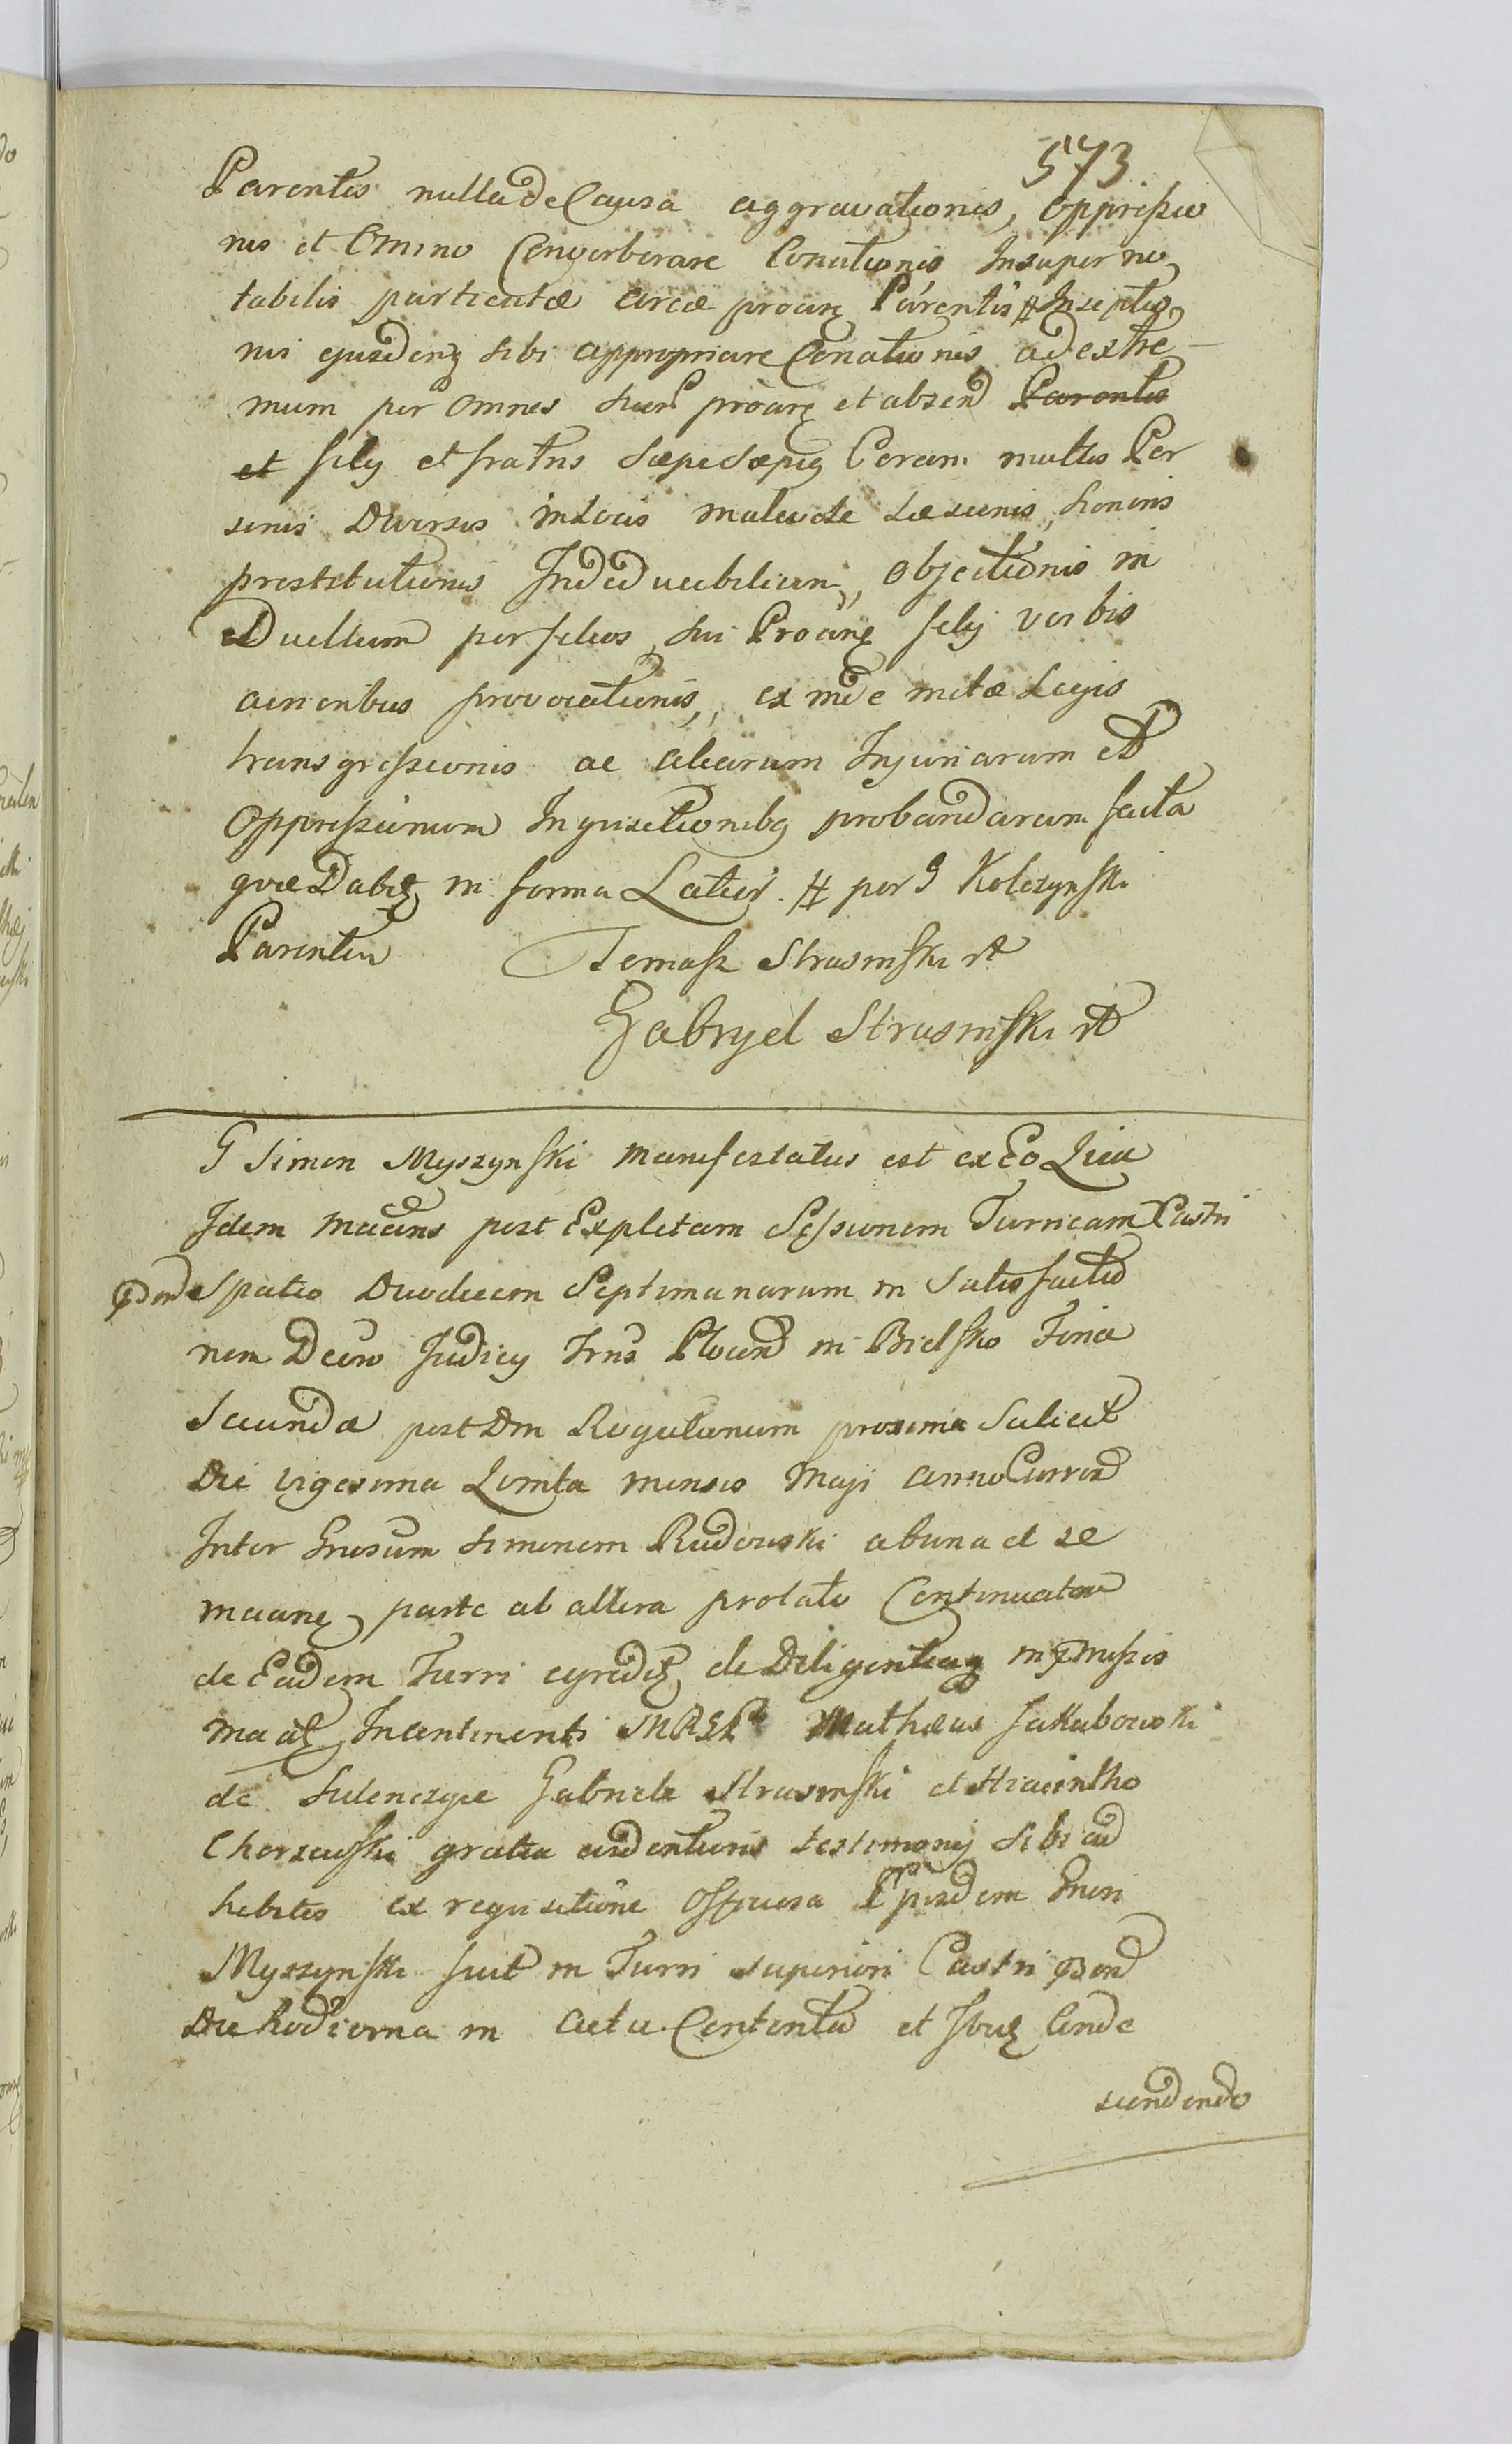 573
Parentis nulla de Causa aggravationis, oppressio
nis et Omino Converberare Conationis Insuper no
tabilis particulæ areæ proang Parentis # Inseptio
nis ejusdemq sibi appropriare Conationis ad extre-
mum per Omnes suen proang et absend Parentis
et filij et fratris sæpesæpiq Coram multis Per
sonis Diversis in Locis maledictæ Læsionis, honoris
prostitutionis Indeduabilium, Objectionis in
Duellum per filios sui Proang filij verbis
acrioribus provocationis, ex inde metæ Legis
transgressionis ac aliarum Injuriarum et
Oppressionum Inquisitionibq probandarum facta
quæ Dabit in forma Latior. # per G Kolczynski
Parentem Tomasz Strusinski
Gabryel Strusinski
G Simon Myszynski manifestatus est ex Eo Quia
Idem maans post Expletam Sessionem Turrieam Castri
spatio Duodecim Septimanarum in Satisfactio
nem Decro Judicy Trris Plocens in Bielsko Feria
Secunda post Dm Rogationum proxima Scilicet
Die vigesima Quinta mensis Maji anno Currend
Inter Grosum Simonem Rudowski ab una et se
maang parte ab altera prolato Continuatam
de Eadem Turri egredit de Diligentiaq
maat Incontinenti Mathæus Jakubowski
de Sulenczyce Gabriele Strusinski et Hiacintho
Chorzewski gratia evidentioris testimonij sibi ad
hibitis ex requisitione Officiosa Ejusdem Gnosi
Myszynski fuit in Turri superiori Castri
Die hodierna in actu Contentu et Ibiq Conde
scendendo